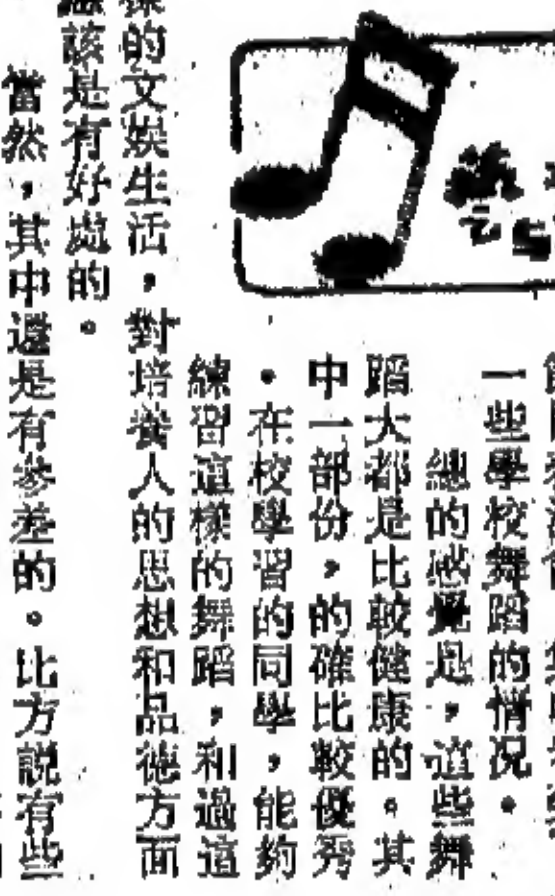 一些學校舞蹈的情況。
總的感覺是,這些舞
蹈大都是比較健康的。其
中一部份,的確比較優秀
。在校學習的同學,能夠
練習這樣的舞蹈,和過這
樣的文娛生活,對培養人的思想和品德方面
應該是有好處的。
當然,其中還是有參差的。比方說有些